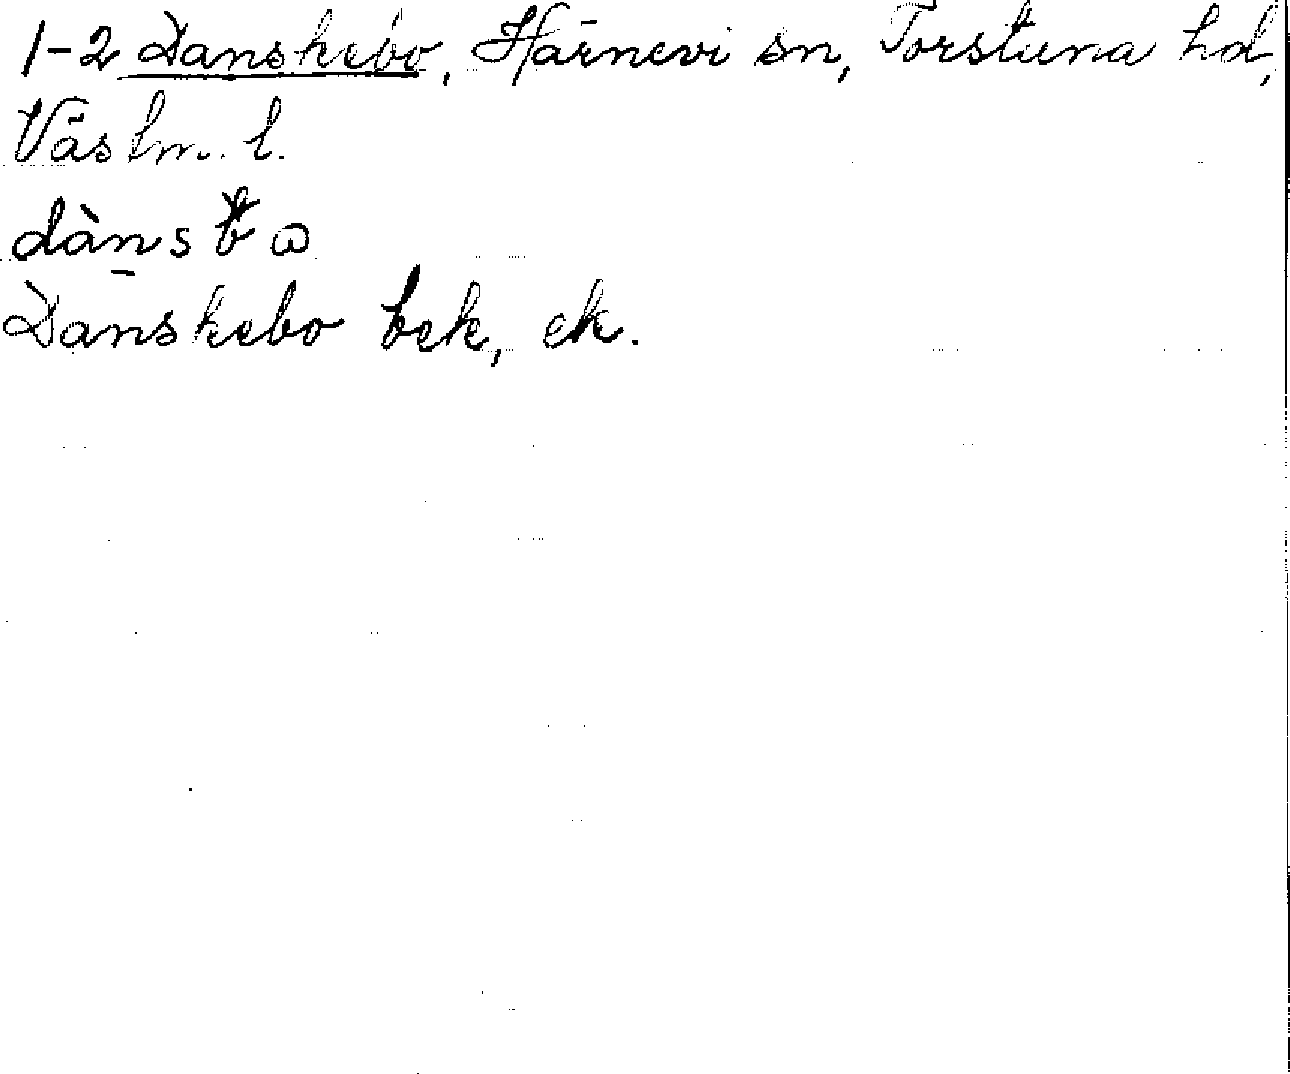 1-2 Danskebo, Härnevi sn, Torstuna hd,
Västm. l.
Danskebo bek, ek.